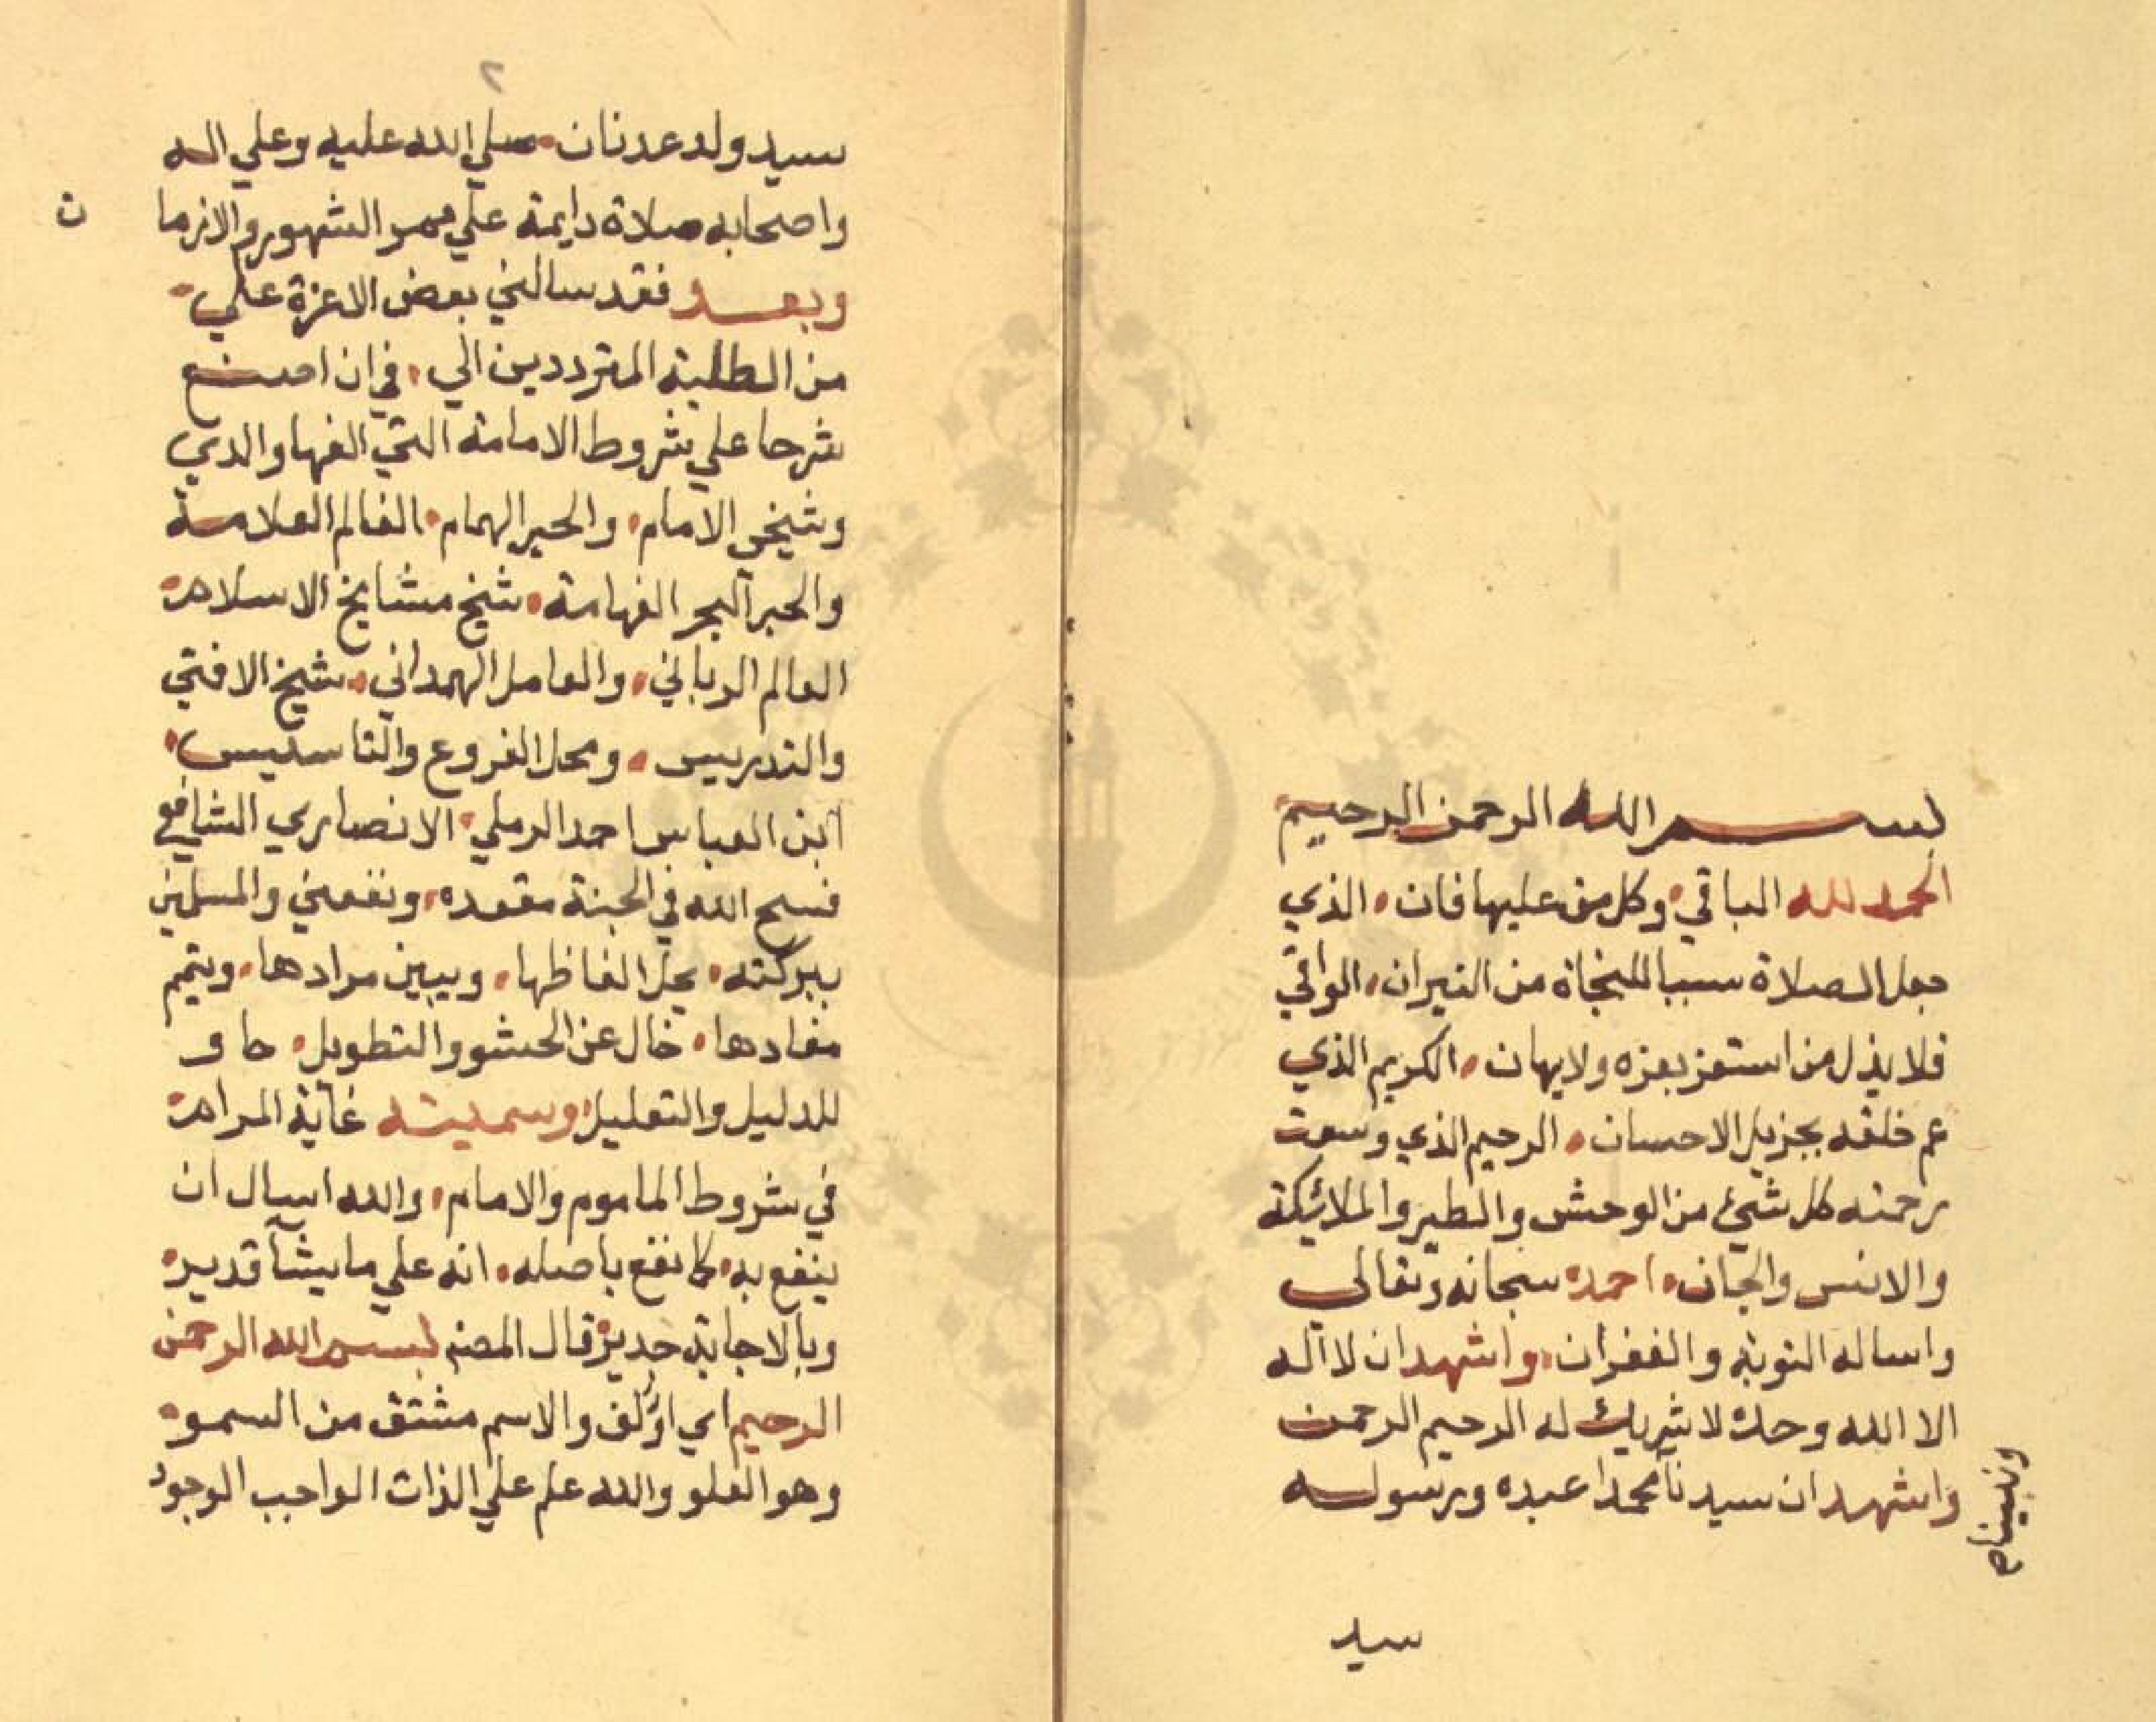 بسم الله الرحمن الرحيم
الحمد لله الباقي وكل من عليها فان الذي
جعل الصلاة سببا للنجاة من النيران الواقي
فلا يذل من استعز بعزه ولا يهان الكريم الذي
عم خلقه بجزيل الاحسان الرحيم الذي وسعت
رحمته كل شيئ من الوحش والطير والملائيكة
والانس والجان احمده سبحانه وتعالي
واساله التوبة والغفران واشهد ان لا اله
الا الله وحده لا شريك له الرحيم الرحمن
واشهد ان سيدنا محمدا عبده ورسوله
ونبينا
سيد
٢
سيد ولد عدنان صلي الله عليه وعلي اله
واصحابه صلاة دايمة علي ممر الشهور والازما
ن
وبعد فقد سالني بعض الاعزة علي
من الطلبة المترددين الي في ان اصنع
شرحا علي شروط الامامة التي الفها والدي
وشيخي الامام والحبر الهمام العالم العلامة
والحبر البحر الفهامة شيخ مشايخ الاسلام
العالم الرباني والعامل الهمداني شيخ الافتي
والتدريس ومحل الفروع والتاسيس
ابن العباس احمد الرملي الانصاري الشافعي
فسح الله في الجنة مقعده ونفعني والمسلمين
ببركته يحل الفاظها ويبين مرادها ويتمم
مفادها خال عن الحشو والتطويل حاو
للدليل والتعليل وسميته غاية المرام
في شروط الماموم والامام والله اسال ان
ينفع به كما نفع باصله انه علي ما يشآ قدير
وبالاجابة جدير قال المصنه بسم الله الرحمن
الرحيم اي اؤلف والاسم مشتق من السمو
وهو العلو والله علم علي الذات الواجب الوجود